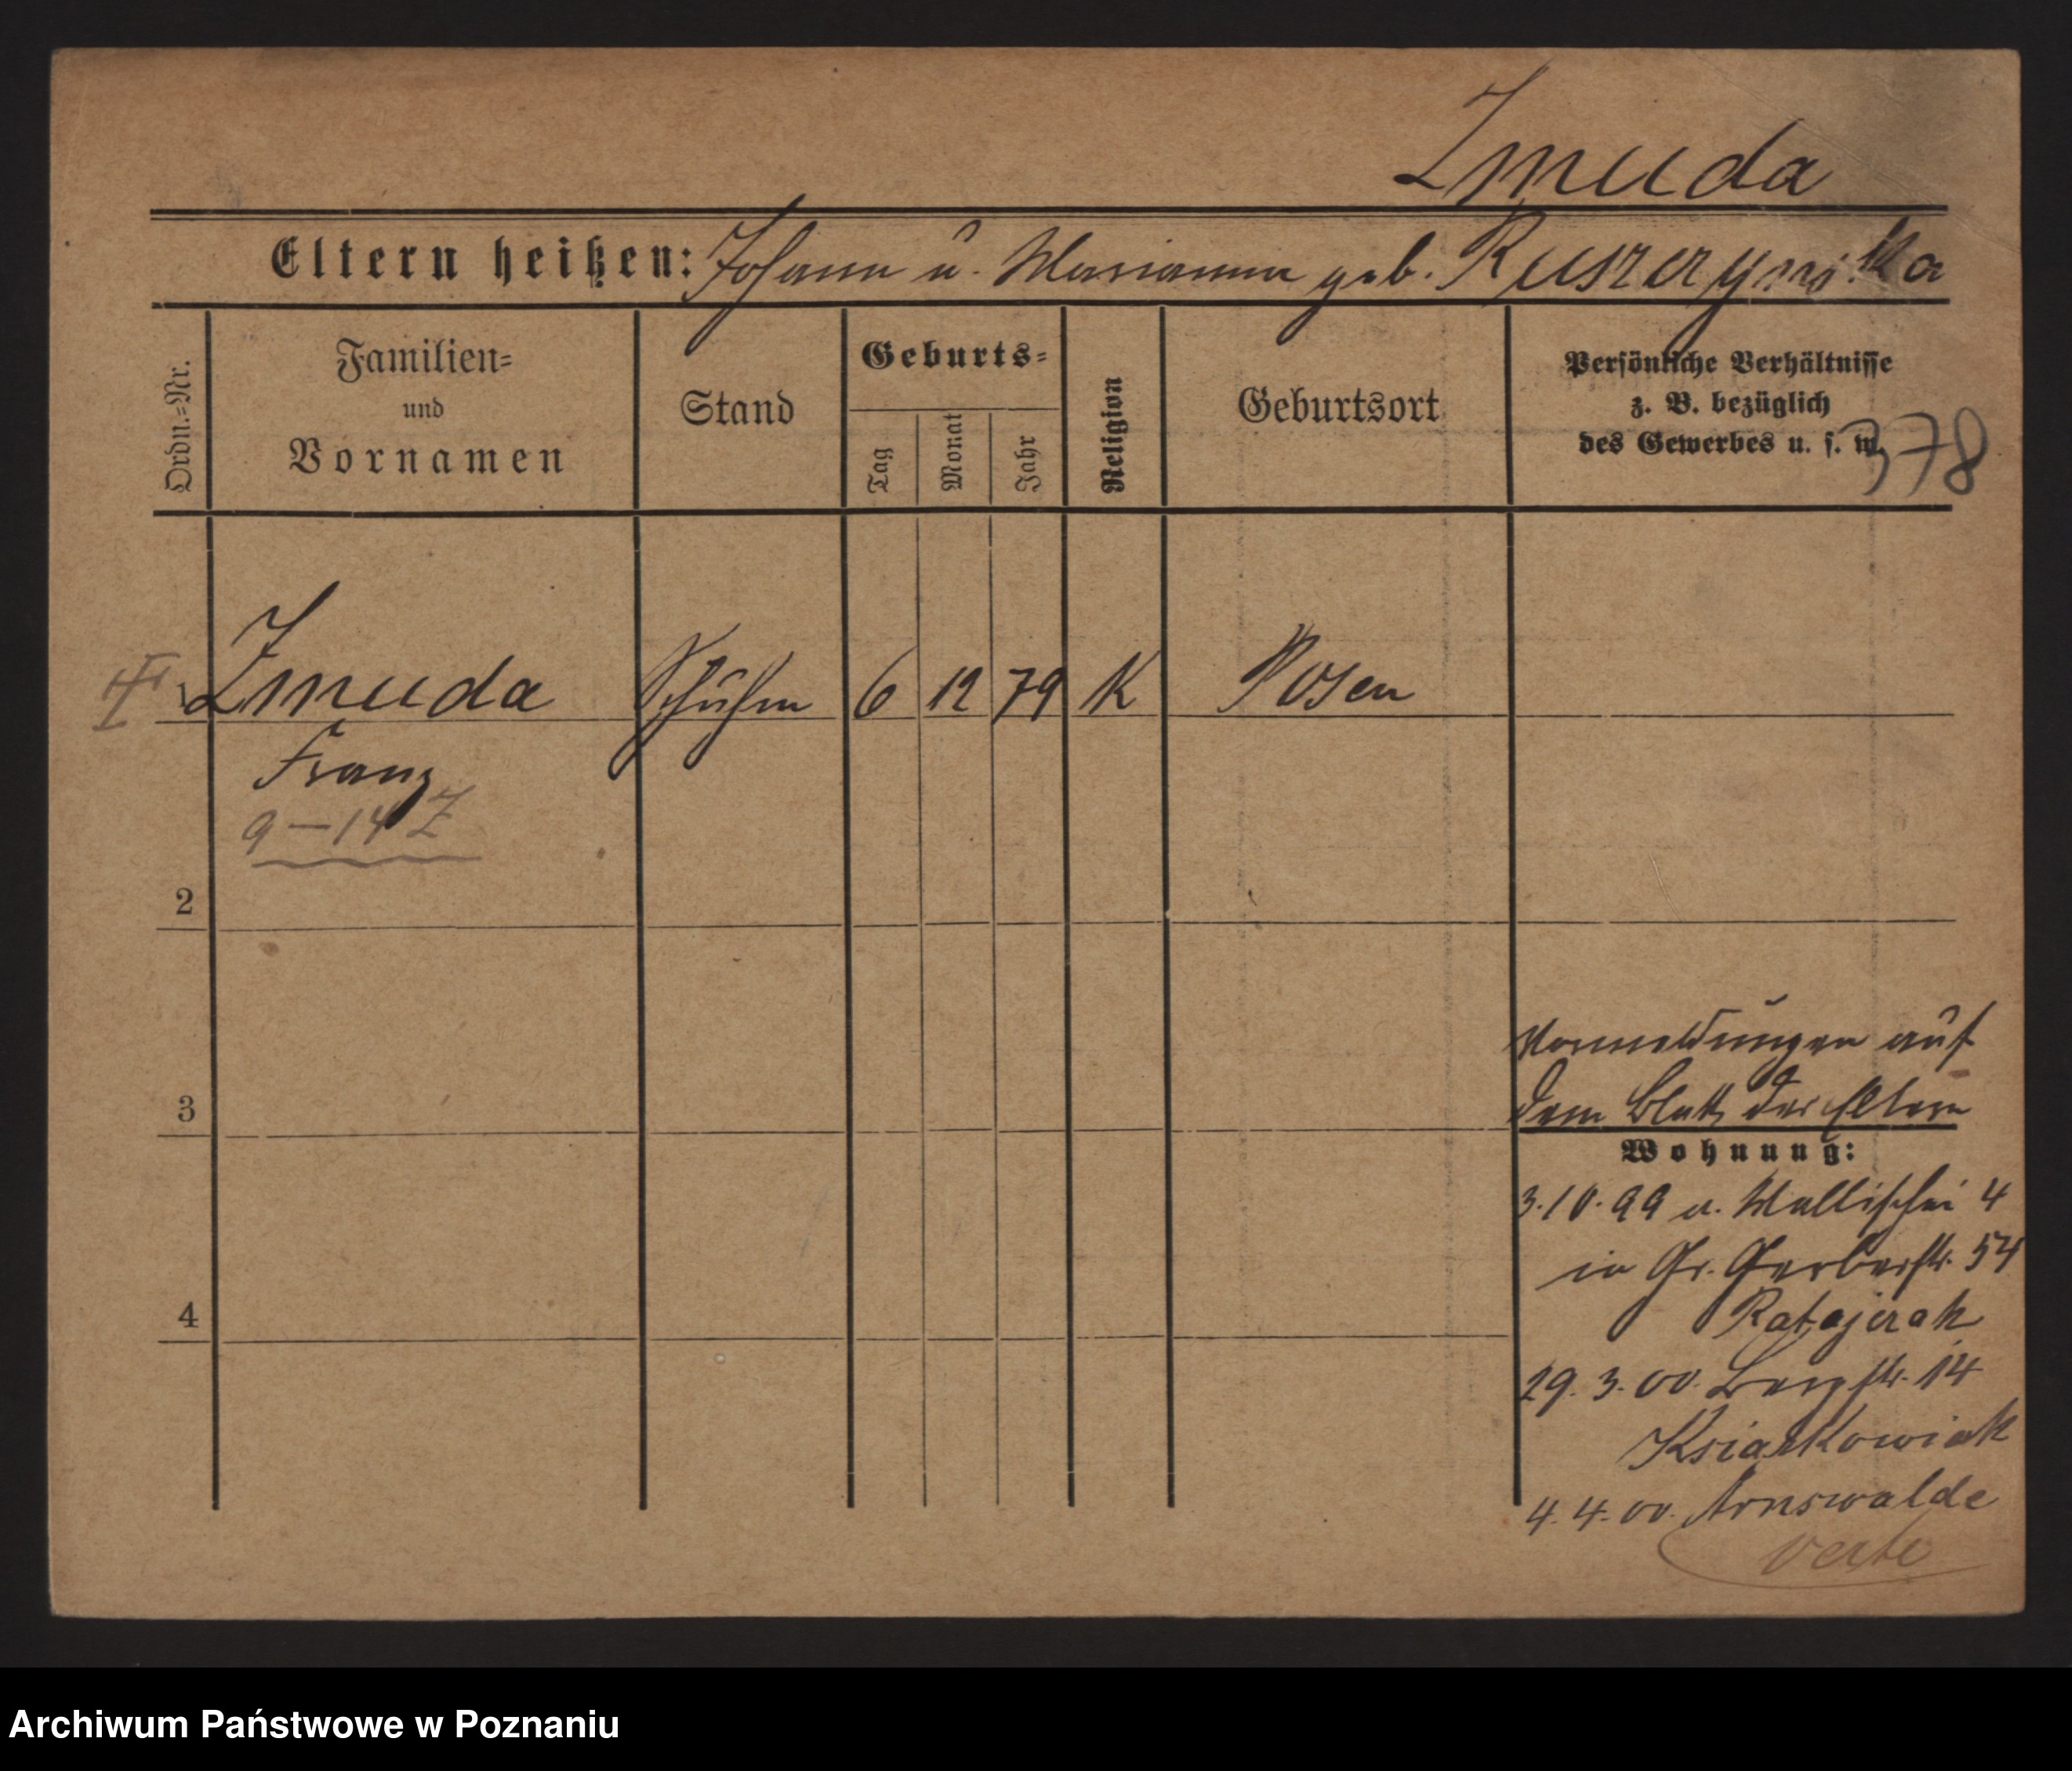 Zmuda
Eltern heißen: Johann u. Marianna geb. Ruszczynska
Ordn.=Nr.
Familien=
und
Vornamen
Stand
Geburts=
Tag
Monat
Jahr
Religion
Geburtsort
Persönliche Verhältnisse
z. B. bezüglich
des Gewerbes u. s. w.
378
Zmuda
6 12 79 K Posen
Franz
9—14 Z
2
3
4
Vormeldungen auf
dem Blatt der Eltern
Wohnung:
3.10.99 a. Wallischei 4
in Gr. Gerberstr. 54
Ratajczak
29. 3. 00. Bergstr. 14
Ksiaskowiak
4. 4. 00. Arnswalde
verte
Archiwum Państwowe w Poznaniu